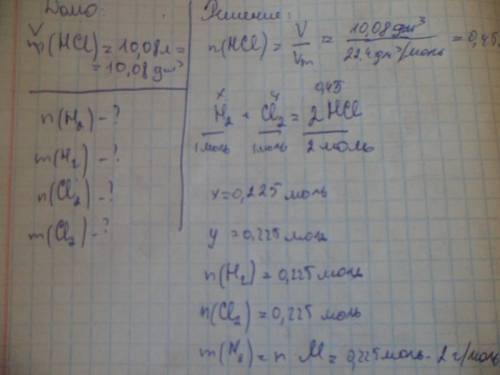 Дано:
V(HCl) = 10,08 л =
= 10,08 дм³
n(H₂) - ?
m(H₂) - ?
n(Cl₂) - ?
m(Cl₂) - ?
Решение:
n(HCl) = V/Vm = 10,08 дм³/22,4 дм³/моль = 0,45
x y 0,45
H₂ + Cl₂ = 2HCl
1 моль 1 моль 2 моль
x = 0,225 моль
y = 0,225 моль
n(H₂) = 0,225 моль
n(Cl₂) = 0,225 моль
m(H₂) = n · M = 0,225 моль · 2 г/моль